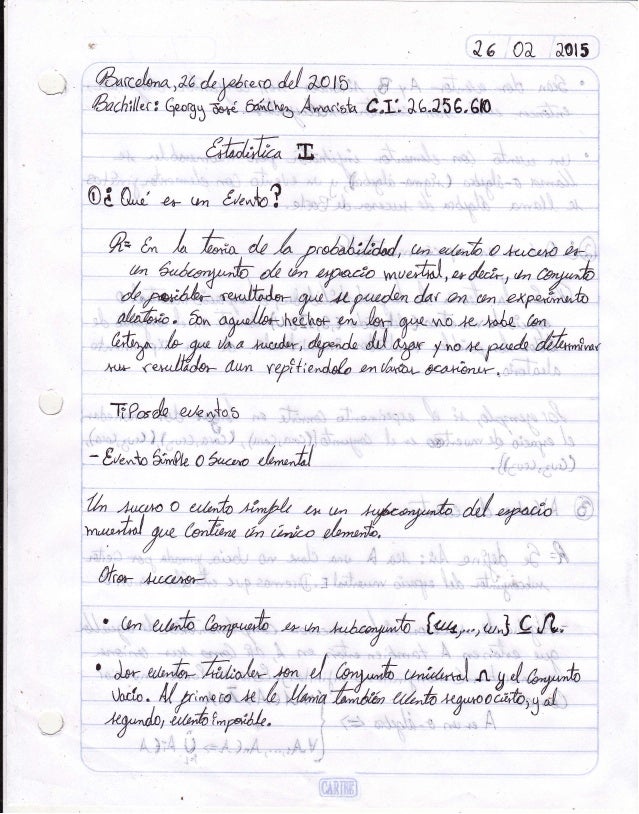 26 02 2015
Barcelona, 26 de febrero del 2015
Bachiller: Georgy José Sánchez Amarista C.I: 26.256.610
Estadística I
① ¿Qué es un Evento?
R= En la teoría de la probabilidad, un evento o suceso es
un Subconjunto de un espacio muestral, es decir, un Conjunto
de posibles resultados que se pueden dar en un experimento
aleatorio. Son aquellos hechos en los que no se sabe con
Certeza lo que va a suceder, depende del azar y no se puede determinar
sus resultados aun repitiendolo en varias ocasiones.
Tipos de eventos
- Evento Simple o Suceso elemental
Un suceso o evento simple es un subconjunto del espacio
muestral que Contiene un único elemento.
Otros sucesos
• Un evento Compuesto es un subconjunto {ω₁,..., ωn} ⊆ Ω.
• Los eventos Triviales son el Conjunto universal Ω y el Conjunto
Vacío. Al primero se le llama también evento seguro o cierto, y al
segundo, evento imposible.
CARIBE